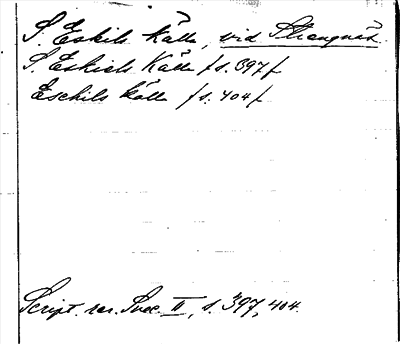 S. Eskils källa, vid Strengnäs.
S. Eskials Källa /s. 397/
Eschils källa /s. 404/
Script. rer. Svec. II, s. 397, 404.